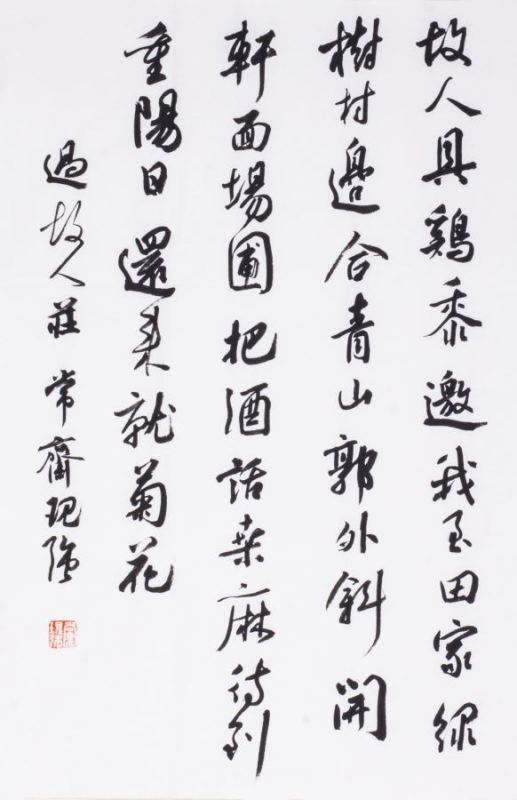 故人具鷄黍邀我至田家绿
樹村邊合青山郭外斜開
軒面場圃把酒話桑麻待到
重陽日還来就菊花
過故人莊 常齋現強